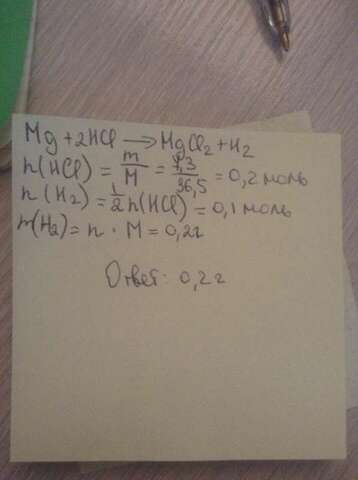 Mg + 2HCl → MgCl₂ + H₂
n(HCl) = m/M = 7,3/36,5 = 0,2 моль
n(H₂) = 1/2 n(HCl) = 0,1 моль
m(H₂) = n · M = 0,2г
Ответ: 0,2г